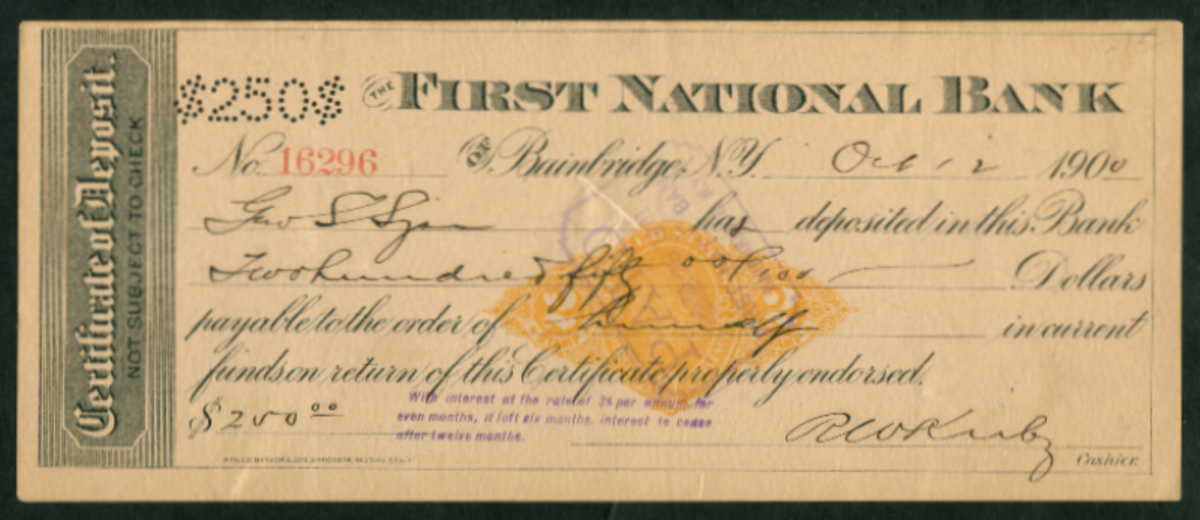 Certificate of Deposit.
NOT SUBJECT TO CHECK
$250$ THE FIRST NATIONAL BANK
No. 16296 OF Bainbridge, N.Y. Oct 12 1900
Geo S has deposited in this Bank
Two hundred fifty 00/100 Dollars
payable to the order of himself in current
funds on return of this Certificate properly endorsed.
$250 00
With interest at the rate of 3% per annum for
even months, if left six months. interest to cease
after twelve months.
Cashier.